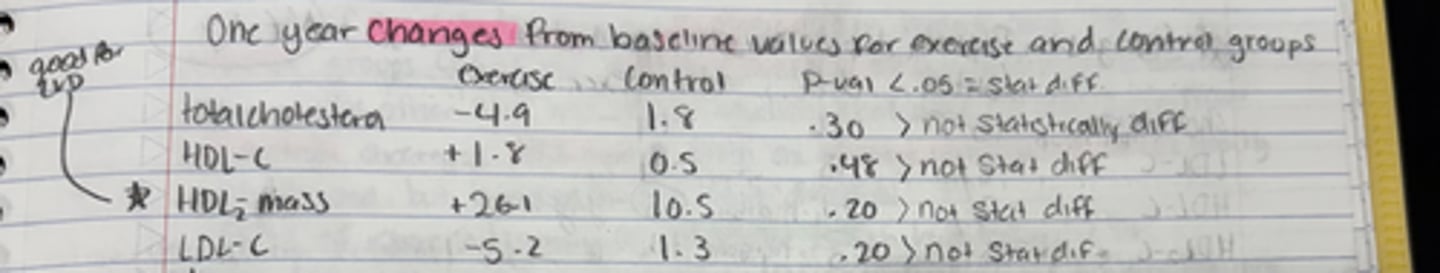 One year changes from baseline values for exercise and control groups
good for
exercise control p-val <.05 = stat diff.
total cholestera -4.9 1.8 .30 > not statistically diff
HDL-C +1.8 0.5 .48 > not stat diff
★ HDL₂ mass +26.1 10.5 .20 > not stat diff
LDL-C -5.2 1.3 .20 > not stat dif.